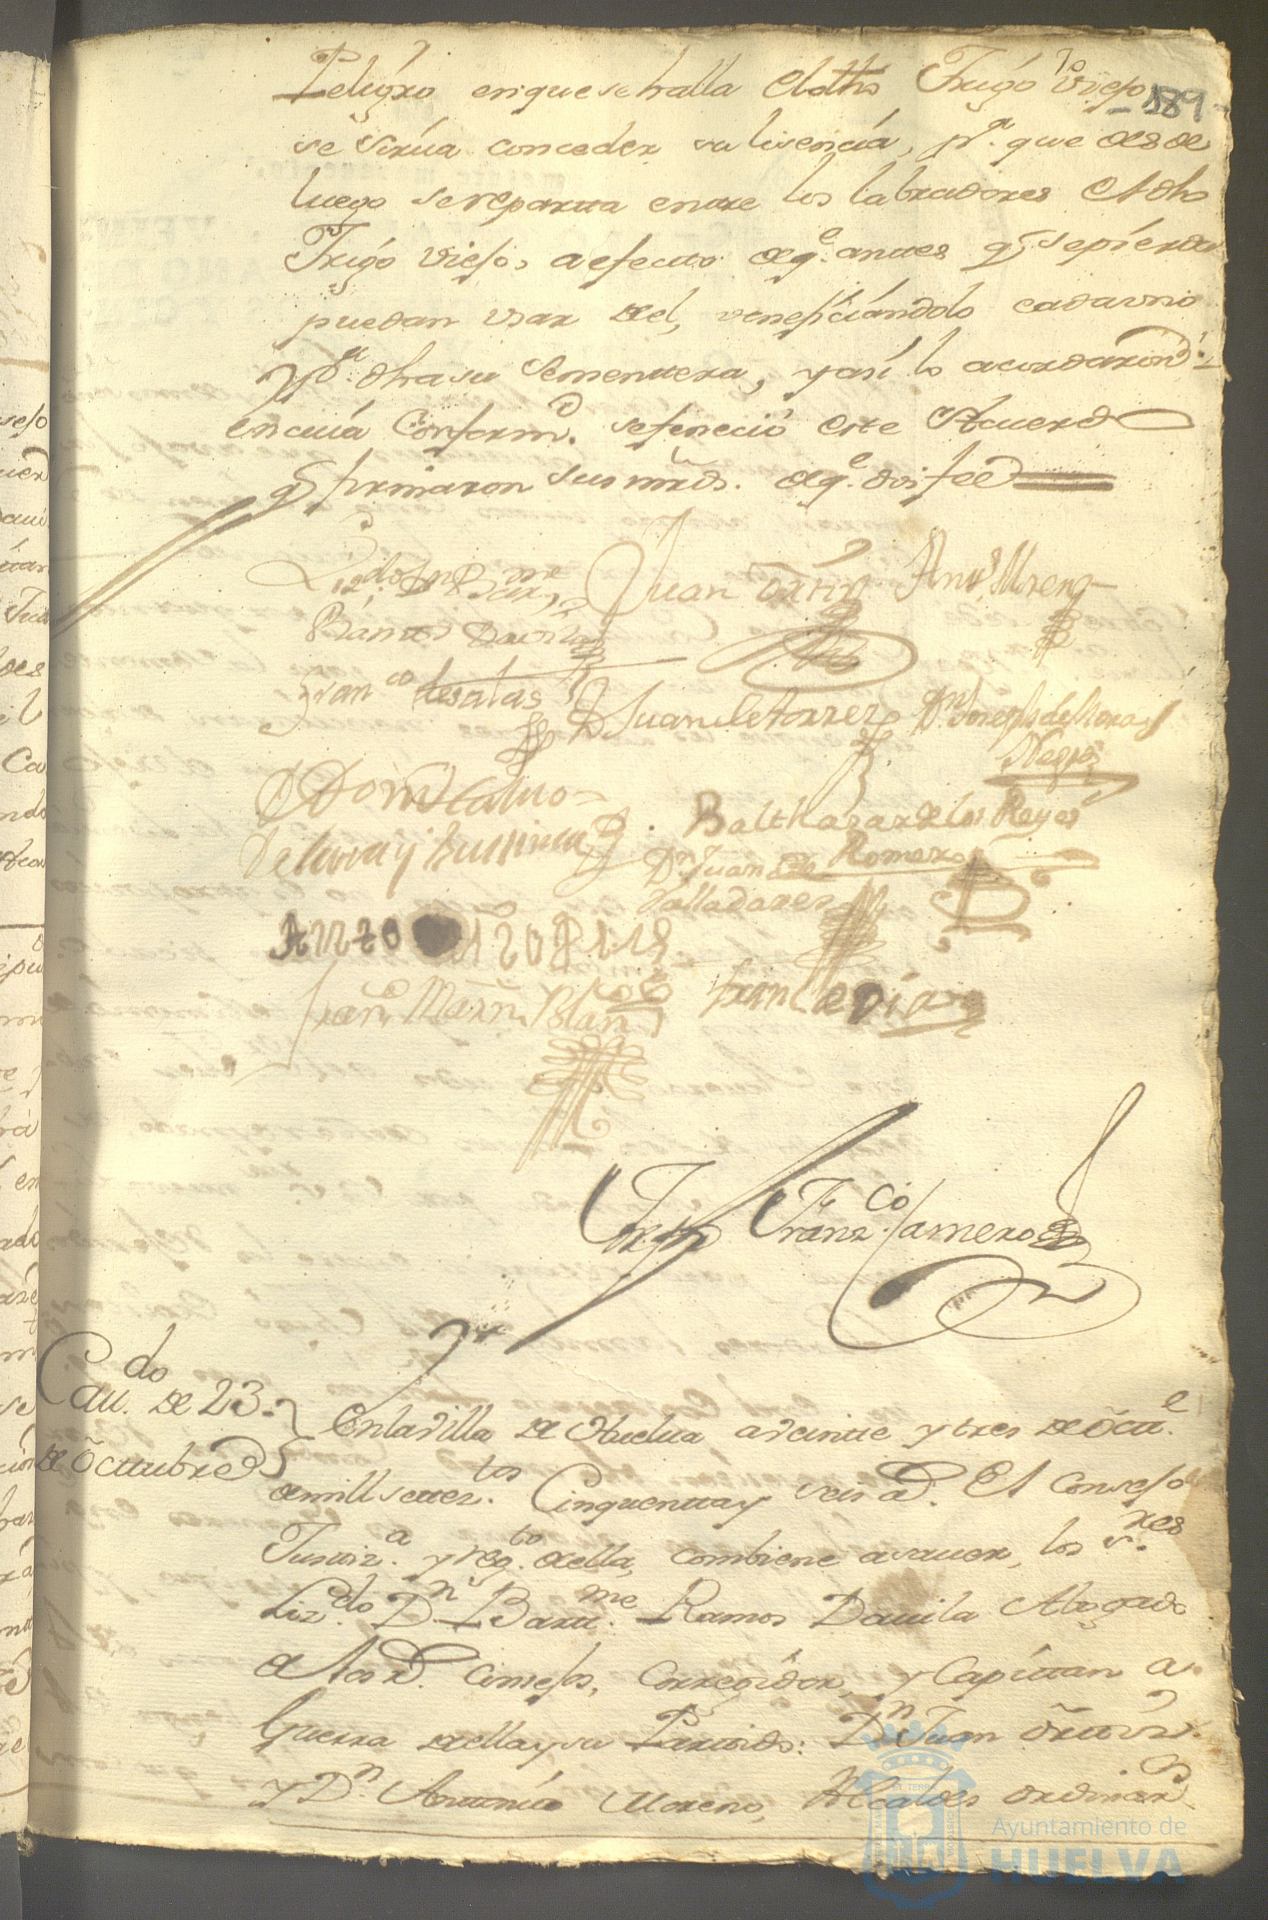 Peligro en que se halla el dho Trigo viejo
189
se sirva conceder su lisencia, pa. que desde
luego se reparta entre los labradores el dho
Trigo viejo, a efecto de qe. antes q se pierda
puedan usar del, veneficiandolo cada uno
pa. dha su sementera, y asi lo acordaron
en cuia Conformd. se fenecio este Acuerdo
q firmaron sus mrds. de qe. doi fee
Lizdo. Dn Barme
Ramos Davila
Juan Ortiz
Anto Moreno
Franco de salas
D Juan de torres
Dn Joseph de Mora
Negro
Balthazar de los Reyes
Romero
Dn Juan
Valladares
Franco Marn Blanco
Fran Dias
Joseph Franzco Camero
Cavdo. de 23
de Octubre
En la Villa de Huelva a veinte y tres de Octue.
de mill setezтos. Cinquenta y seis ad. El Consejo
Justiza. y regto. de ella, combiene a saver, los sres
Lizdo. Dn. Barme. Ramos Davila Abogado
de los Rd. Consejos, Corregidor, y Capitan a
Guerra de ella y su Partido: Dn Juan Ortiz
y Dn. Antonio Moreno, Alcaldes ordinar
Ayuntamiento de
HUELVA